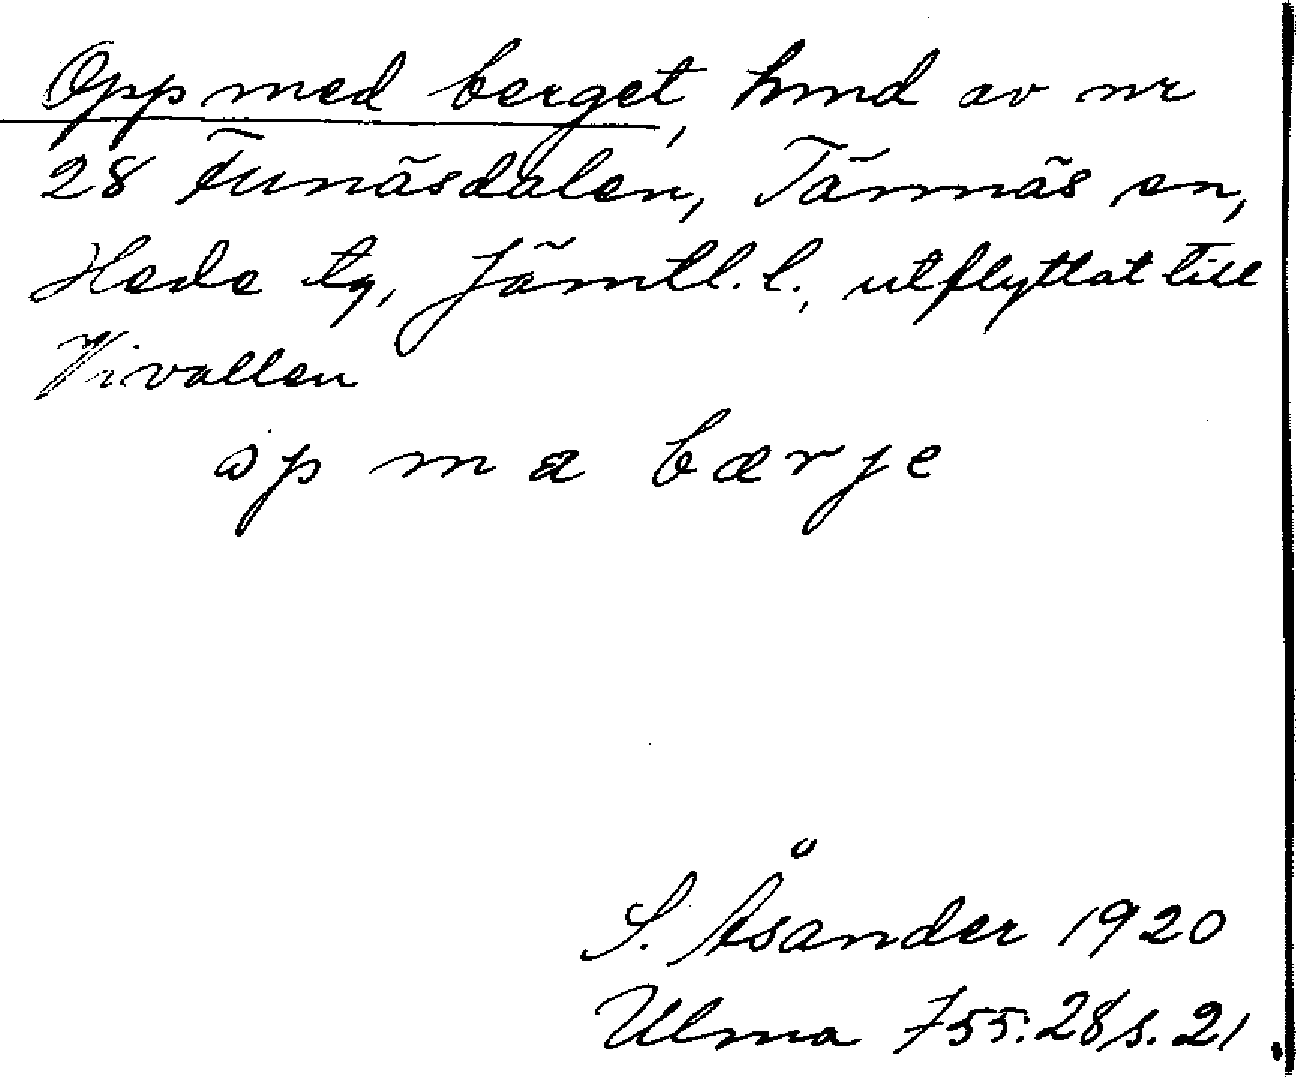 Opp med berget, hmd av nr
28 Funäsdalen, Tännäs sn,
Hede tg, Jämtl. l., utflyttat till
Vivallen
öp m a bærje
S. Åsander 1920
Ulma 755:28 s. 21